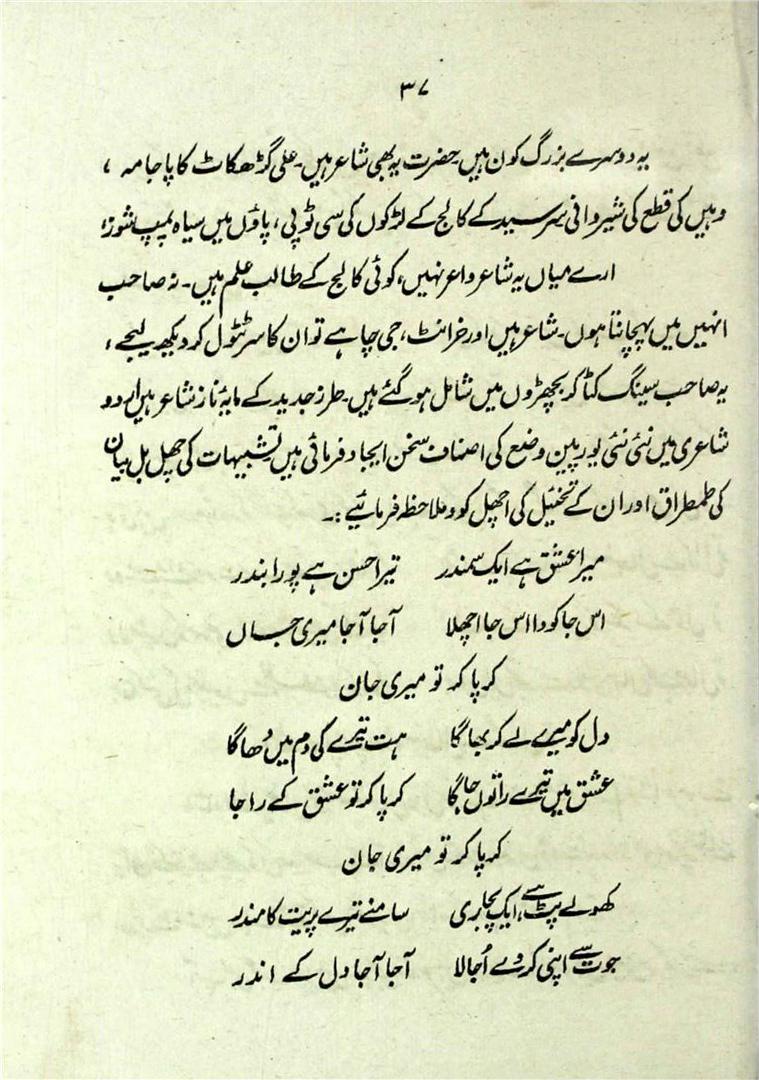 ۳۷
یہ دوسرے بزرگ کون ہیں۔ حضرت یہ بھی شاعر ہیں۔ علی گڑھ کاٹ کا پاجامہ ،
وہیں کی قطع کی شیروانی سرسید کے کالج کے لڑکوں کی سی ٹوپی، پاؤں میں سیاہ پمپ شوز،
ارے میاں یہ شاعر واعر نہیں، کوئی کالج کے طالب علم ہیں۔ نہ صاحب
انہیں میں پہچانتا ہوں۔ شاعر ہیں اور خرانٹ، جی چاہے تو ان کا سر ٹٹول کر دیکھ لیجے ،
یہ صاحب سینگ کٹا کر بچھڑوں میں شامل ہو گئے ہیں۔ طرز جدید کے مایۂ ناز شاعر ہیں اردو
شاعری میں نئی نئی یورپین وضع کی اصناف سخن ایجاد فرمائی ہیں تشبیہات کی چھل بل بیان
کی طمطراق اور ان کے تخئیل کی اچھل کود ملاحظہ فرمائیے :۔
میرا عشق ہے ایک سمندر تیرا حسن ہے پورا بندر
اس جا کودا اس جا اچھلا آجا آجا میری جاں
کرپا کر تو میری جان
دل کو میرے لے کر بھاگا ہت تیرے کی دم میں دھاگا
عشق میں تیرے راتوں جاگا کرپا کر تو عشق کے راجا
کرپا کر تو میری جان
کھولے پٹ ہے ایک پجاری سامنے تیرے پریت کا مندر
جوت سے اپنی کر دے اُجالا آجا آجا دل کے اندر